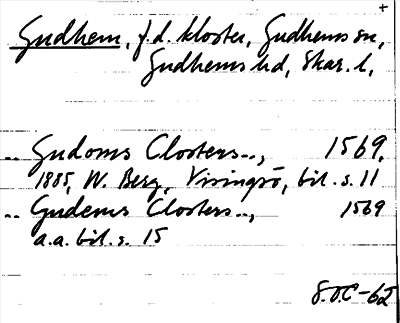 +
Gudhem, f.d. kloster, Gudhems sn,
Gudhems hd, Skar. l.
.. Gudoms Closters..., 1569.
1885, W. Berg, Visingsö, bil. s. 11
.. Gudems Closters..., 1569
a.a. bil. s. 15
S.O.C-62